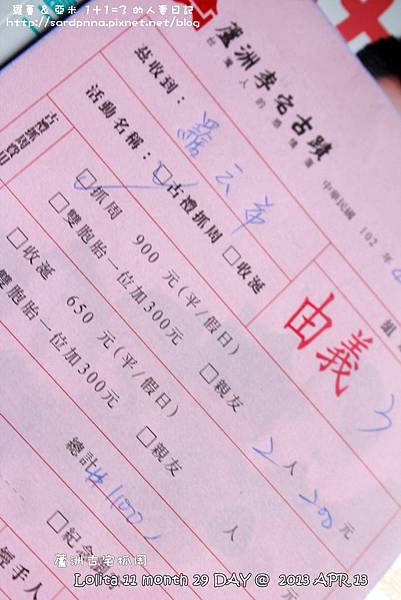 蘿蔓 & 亞米 1+1=3 的人妻日記
http://sardpnna.pixnet.net/blog
蘆洲李宅古蹟
台灣人的感情簿
中華民國 102 年
茲收到：
活動名稱：☑古禮抓周 □收涎
古禮抓周費用
☑抓周 900 元(平/假日)
□雙胞胎一位加300元
□親友 2 人 200 元
□收涎 650 元(平/假日)
□雙胞胎一位加300元
□親友 人
由義
3
總計 $1100
□紀念
經手人
蘆洲古宅抓周
Lolita 11 month 29 DAY @ 2013 APR.13